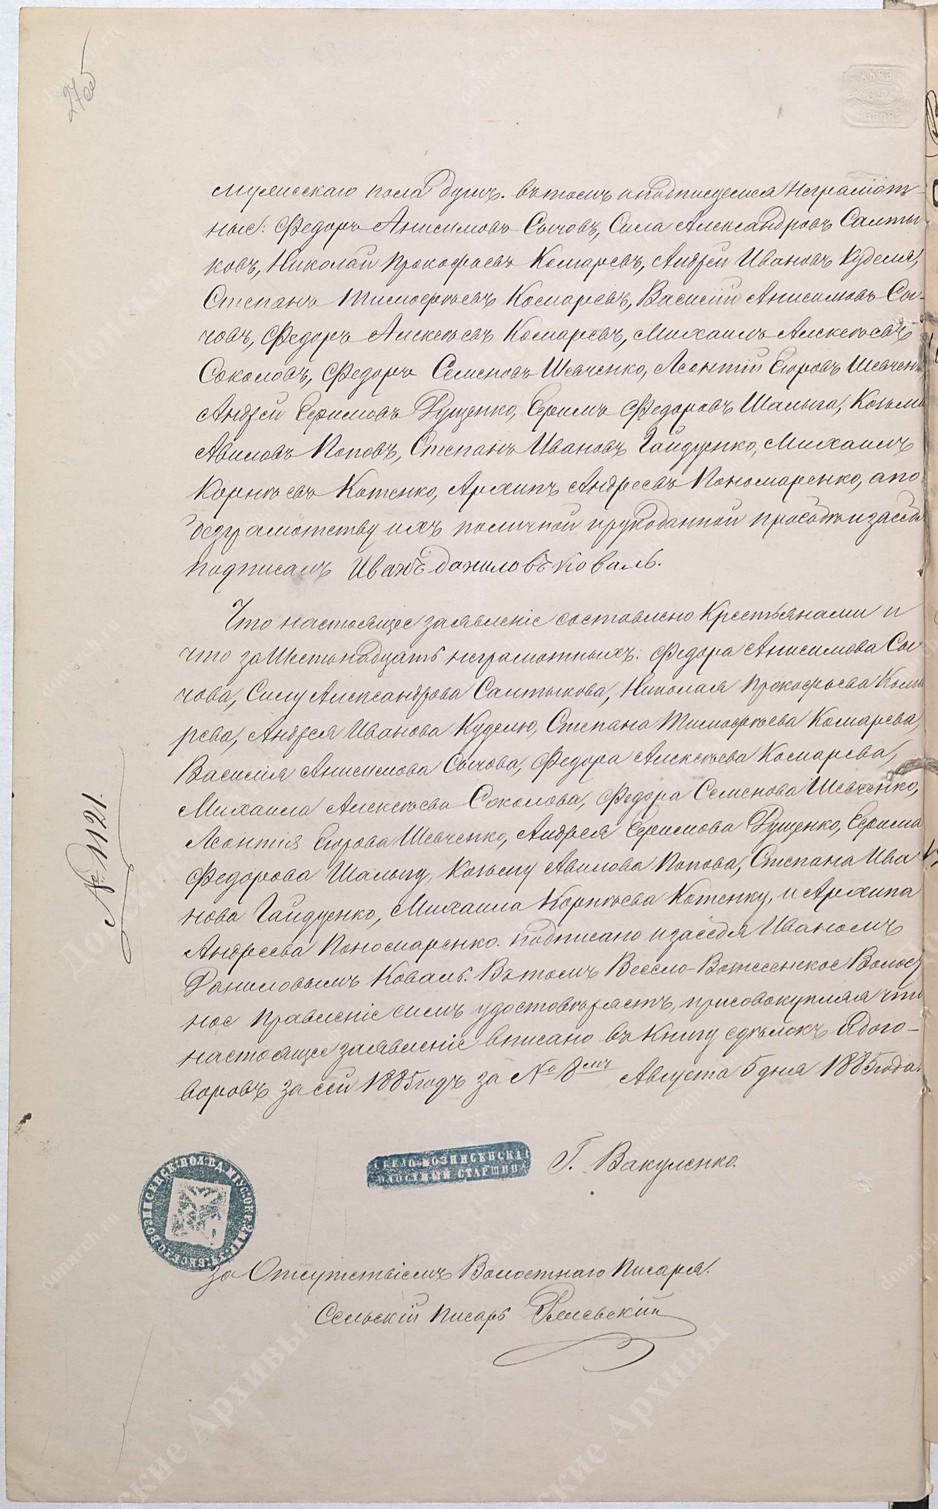 27об
мужескаго пола душъ. въ томъ и подписуемся Неграмот-
ные: Федоръ Анисимовъ Сычовъ, Сила Александровъ Салты-
ковъ, Николай Прокофьевъ Комаревъ, Андрей Ивановъ Куделя,
Степанъ Тимофѣевъ Комаревъ, Василій Анисимовъ Сы-
човъ, Федоръ Алексѣевъ Комаревъ, Михаилъ Алексѣевъ
Соколовъ, Федоръ Семеновъ Шевченко, Леонтій Егоровъ Шевченко
Андрей Ефимовъ Гущенко, Ефимъ Федоровъ Шалыга, Козьма
Авиловъ Поповъ, Степанъ Ивановъ Гайдуенко, Михаилъ
Корнѣевъ Котенко, Архипъ Андреевъ Пономаренко, а по
безграмотству ихъ по личной и рукоданной прозьбѣ и за себя
подписалъ Иванъ даниловъ коваль.
Что настоящее заявленіе составлено Крестьянами и
что за Шестьнадцать неграмотныхъ: Федора Анисимова Сы-
чова, Силу Александрова Салтыкова, Николая Прокофьева Кома-
рева, Андрея Иванова Куделю, Степана Тимофѣева Комарева,
Василія Анисимова Сычова, Федора Алексѣева Комарева,
Михаила Алексѣева Соколова, Федора Семенова Шевченко,
Леонтія Егорова Шевченко, Андрея Ефимова Гущенко, Ефима
Федорова Шалыгу, Козьму Авилова Попова, Степана Ива
нова Гайдуенко, Михаила Корнѣева Котенку, и Архипа
Андреева Пономаренко. подписано и за себя Иваномъ
Даниловымъ Коваль. Въ томъ Весело-Вознесенское Волост
ное Правленіе симъ удостовѣряетъ, присовокупляя что
настоящее заявленіе вписано въ Книгу сдѣлокъ и дого-
воровъ за сей 1885 годъ за № 8мъ Августа 5 дня 1885 года.
№ 1121.
ВЕСЕЛО-ВОЗНЕСЕНСКІЙ
ВОЛОСТНЫЙ СТАРШИНА
Г. Вакуленко.
За Отсутствіемъ Волостнаго Писаря.
Сельскій Писарь